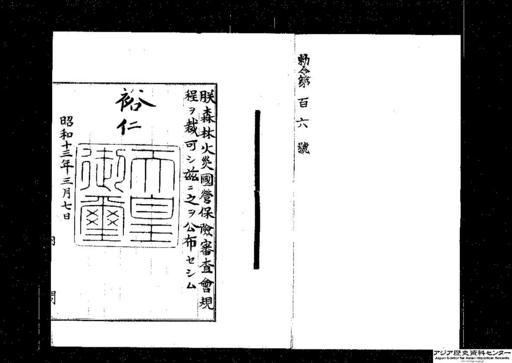 勅令第百六號
朕森林火災國營保險審査會規
程ヲ裁可シ茲ニ之ヲ公布セシム
裕仁
天皇御璽
昭和十三年三月七日
アジア歴史資料センター
Japan Center for Asian Historical Records